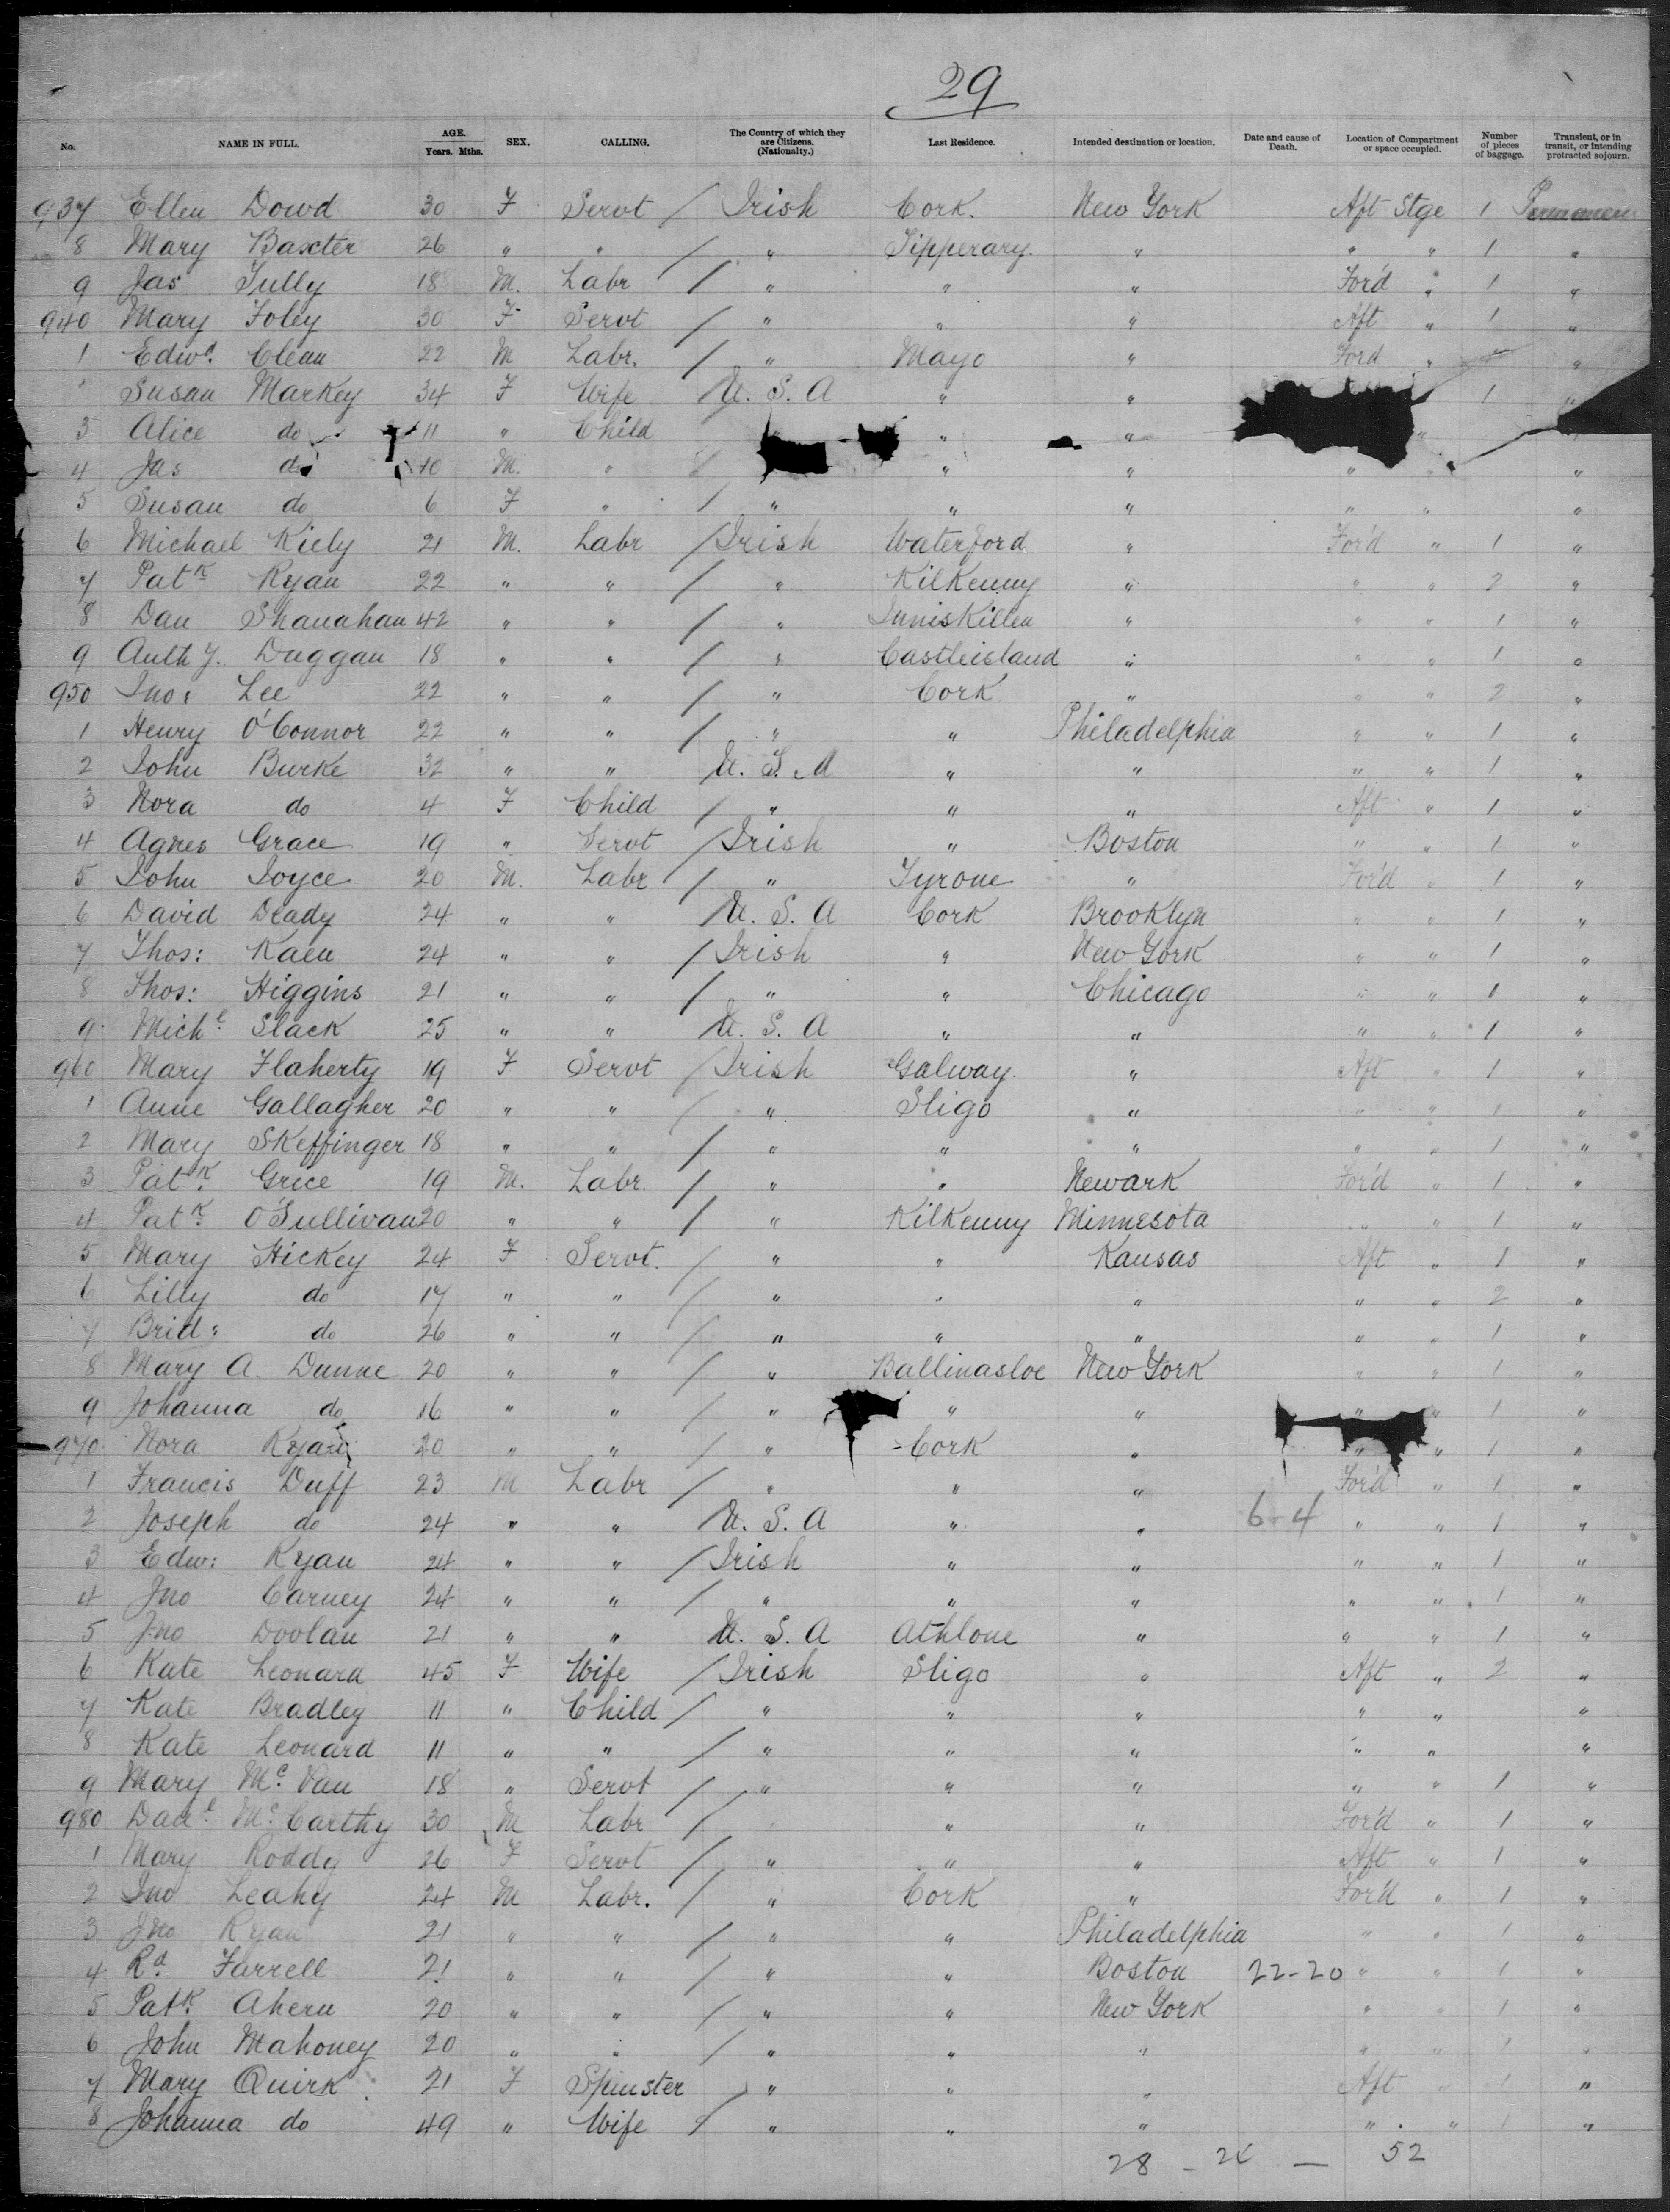 29
No. NAME IN FULL. AGE. Years. Mths. SEX. CALLING. The Country of which they are Citizens. (Nationalty.) Last Residence. Intended destination or location. Date and cause of Death. Location of Compartment or space occupied. Number of pieces of baggage. Transient, or in transit, or intending protracted sojourn.
937 Ellen Dowd 30 F Servt / Irish Cork. New York Aft Stge 1
8 Mary Baxter 26 " " / " Tipperary. " " " 1 "
9 Jas Tully 18 M. Labr / " " " For'd " 1 "
940 Mary Foley 30 F Servt / " " " Aft " 1 "
1 Edwd. Clean 22 M Labr. / " Mayo " Ford " "
Susan Markey 34 F Wife / U. S. A " " 1 "
3 Alice do 11 " Child " " "
4 Jas do 10 M. " / " " " " "
5 Susan do 6 F " / " " " " " "
6 Michael Kiely 21 M. Labr / Irish Waterford " For'd " 1 "
7 Patk Ryan 22 " " / " Kilkenny " " " 2 "
8 Dan Shanahan 42 " " / " Inniskillen " " " 1 "
9 Anthy. Duggan 18 " " / " Castleisland " " " 1 "
950 Jno: Lee 22 " " / " Cork " " " 2 "
1 Henry O'Connor 22 " " / " " Philadelphia " " 1 "
2 John Burke 32 " " U. S. A " " " " 1 "
3 Nora do 4 F Child / " " " Aft " 1 "
4 Agnes Grace 19 " Servt / Irish " Boston " " 1 "
5 John Joyce 20 M. Labr / " Tyrone " For'd " 1 "
6 David Deady 24 " " / U. S. A Cork Brooklyn " " 1 "
7 Thos: Kaen 24 " " / Irish " New York " " 1 "
8 Thos: Higgins 21 " " / " " Chicago " " 1 "
9 Michl Slack 25 " " U. S. A " " " " 1 "
960 Mary Flaherty 19 F Servt / Irish Galway. " Aft " 1 "
1 Anne Gallagher 20 " " / " Sligo " " " 1 "
2 Mary Skeffinger 18 " " / " " " " " 1 "
3 Patk Grice 19 M. Labr. / " " Newark For'd " 1 "
4 Patk O'Sullivan 20 " " / " Kilkenny Minnesota " " 1 "
5 Mary Hickey 24 F Servt. / " " Kansas Aft " 1 "
6 Lilly do 17 " " / " " " " " 2 "
7 Brid: do 26 " " / " " " " " 1 "
8 Mary A. Dunne 20 " " / " Ballinasloe New York " " 1 "
9 Johanna do 16 " " / " " " " " 1 "
970 Nora Ryan 20 " " / " Cork " " " 1 "
1 Francis Duff 23 M Labr / " " " For'd " 1 "
2 Joseph do 24 " " / U. S. A " " 6-4 " " 1 "
3 Edw: Ryan 24 " " / Irish " " " " 1 "
4 Jno Carney 24 " " / " " " " " 1 "
5 Jno Doolan 21 " " U. S. A Athlone " " " 1 "
6 Kate Leonard 45 F Wife / Irish Sligo " Aft " 2 "
7 Kate Bradley 11 " Child / " " " " " "
8 Kate Leonard 11 " " / " " " " " "
9 Mary Mc. Van 18 " Servt / " " " " " 1 "
980 Mc Carthy 30 M Labr / " " For'd " 1 "
1 Mary Roddy 26 F Servt / " " " Aft " 1 "
2 Jno Leahy 24 M Labr. / " Cork " For'd " 1 "
3 Jno Ryan 21 " " / " " Philadelphia " " 1 "
4 Rd. Farrell 21 " " / " " Boston 22-20 " " 1 "
5 Patk. Ahern 20 " " / " " New York " " 1 "
6 John Mahoney 20 " " / " " " " " 1 "
7 Mary Quirk 21 F Spinster / " " " Aft " 1 "
8 Johanna do 49 " Wife / " " " " " 1 "
28 - 24 — 52